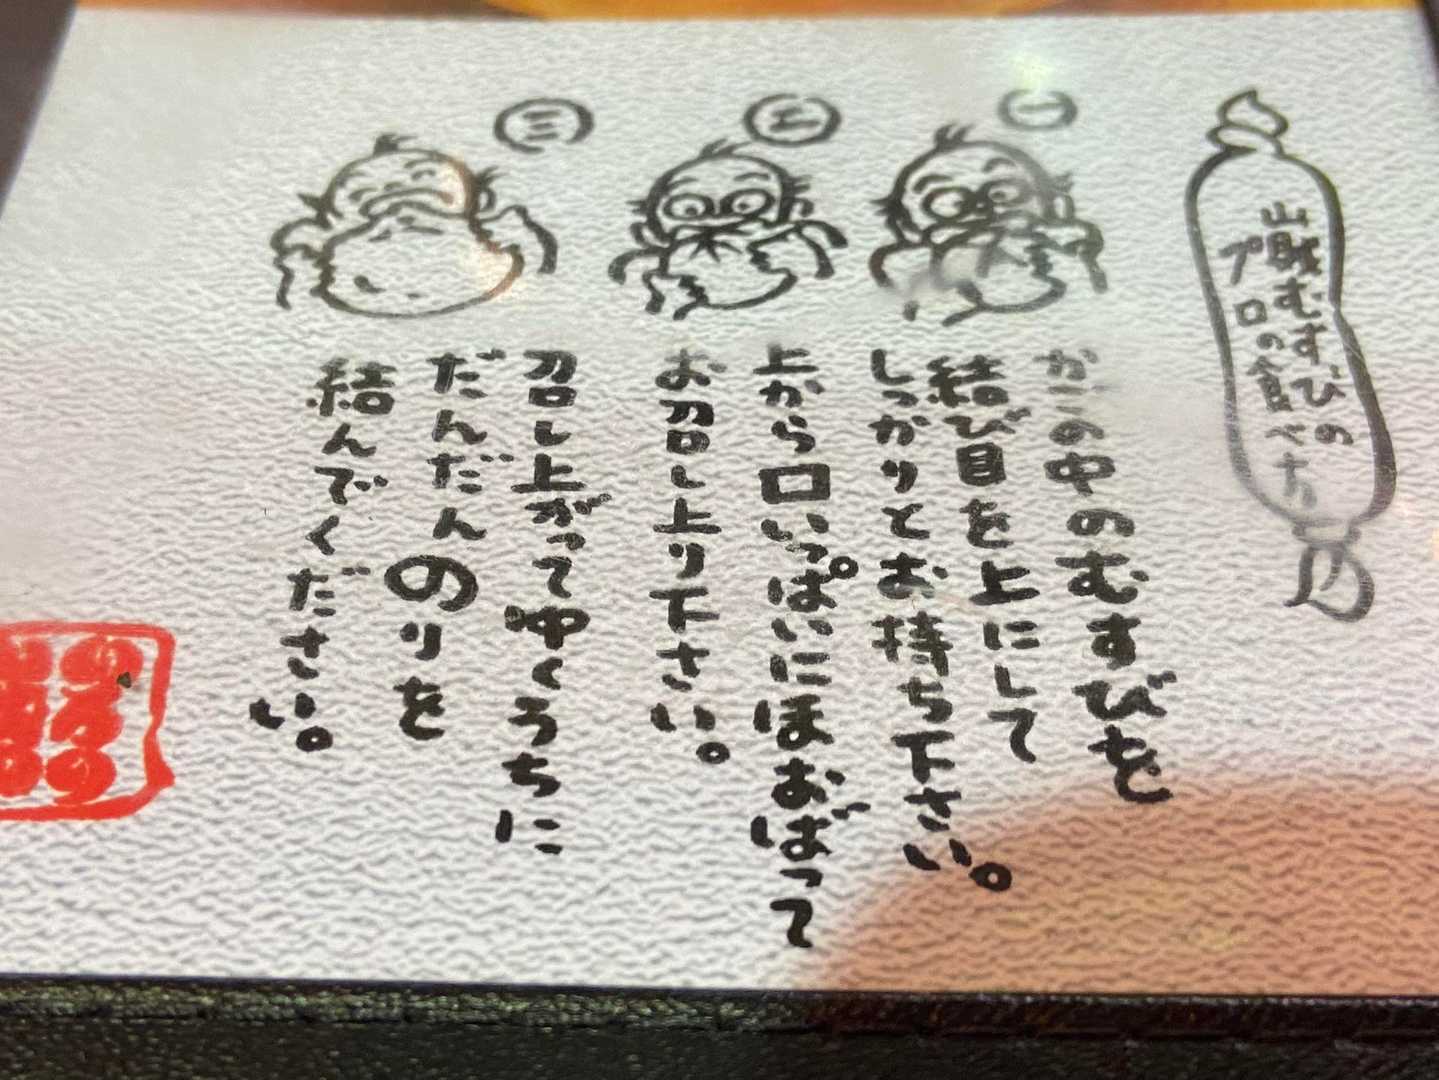 山賊むすびの
プロの食べ方
一
かごの中のむすびを
結び目を上にして
しっかりとお持ち下さい。
二
上から口いっぱいにほおばって
お召し上り下さい。
三
召し上がってゆくうちに
だんだんのりを
結んでください。